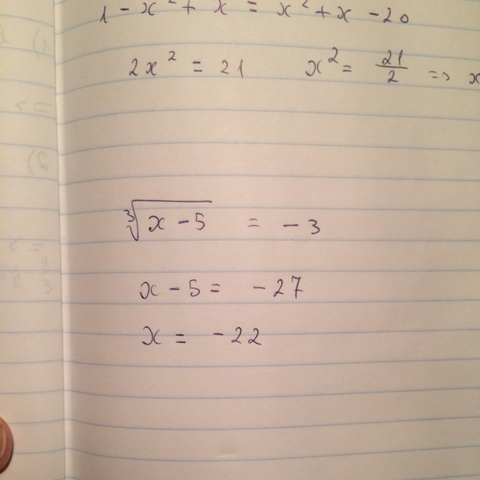 1 - x² + x = x² + x - 20
2x² = 21 x² = 21/2 => x
∛(x - 5) = - 3
x - 5 = - 27
x = - 22